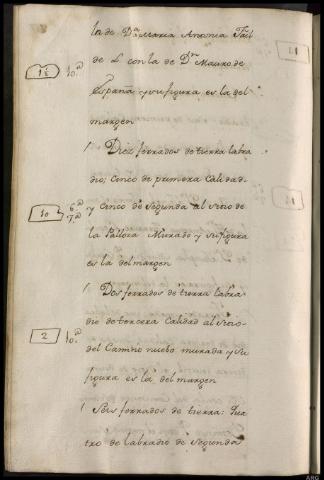 la de D.ª Maria Antonia
de L con la de D.n Mauro de
España y su figura es la del
margen
10.ª
/ Diez ferrados de tierra labra
dio; Cinco de primera Calidad
y Cinco de Segunda al Sitio de
10
6.ª
7.ª
la Pallora Murado y su figura
es la del margen
/ Dos ferrados de tierra Labra
dio de tercera Calidad al Sitio
2
10.ª
del Camino nuebo murada y su
figura es la del margen
/ Seis ferrados de tierra: Qua
tro de labradio de Segunda
ARG